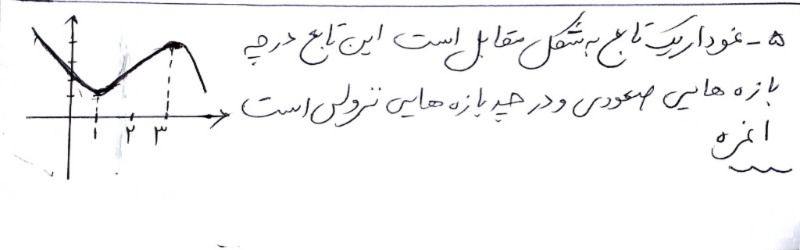 ۵- نمودار یک تابع به شکل مقابل است این تابع در چه
بازه هایی صعودی و در چه بازه هایی نزولی است
۱ نمره
۱ ۲ ۳